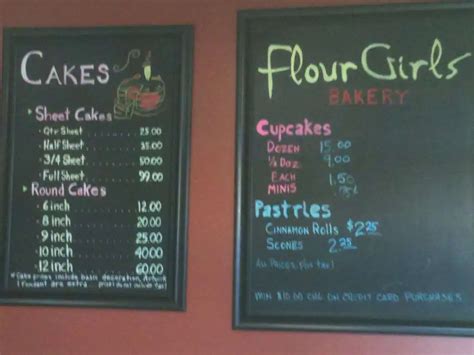 CAKES
Sheet Cakes
Qtr Sheet ........ 25.00
Half Sheet ....... 35.00
3/4 Sheet ........ 50.00
Full Sheet ....... 99.00
Round Cakes
6 inch ........ 12.00
8 inch ........ 20.00
9 inch ........ 25.00
10 inch ....... 40.00
12 inch ....... 60.00
*Cake prices include basic decoration, Artwork
& Fondant are extra... prices do not include tax!
Flour Girls
BAKERY
Cupcakes
DOZEN 15.00
1/2 DOZ 9.00
EACH 1.50
MINIS
Pastries
CINNAMON ROLLS $2.25
SCONES 2.25
ALL PRICES PLUS TAX!
MIN $10.00 CHG ON CREDIT CARD PURCHASES